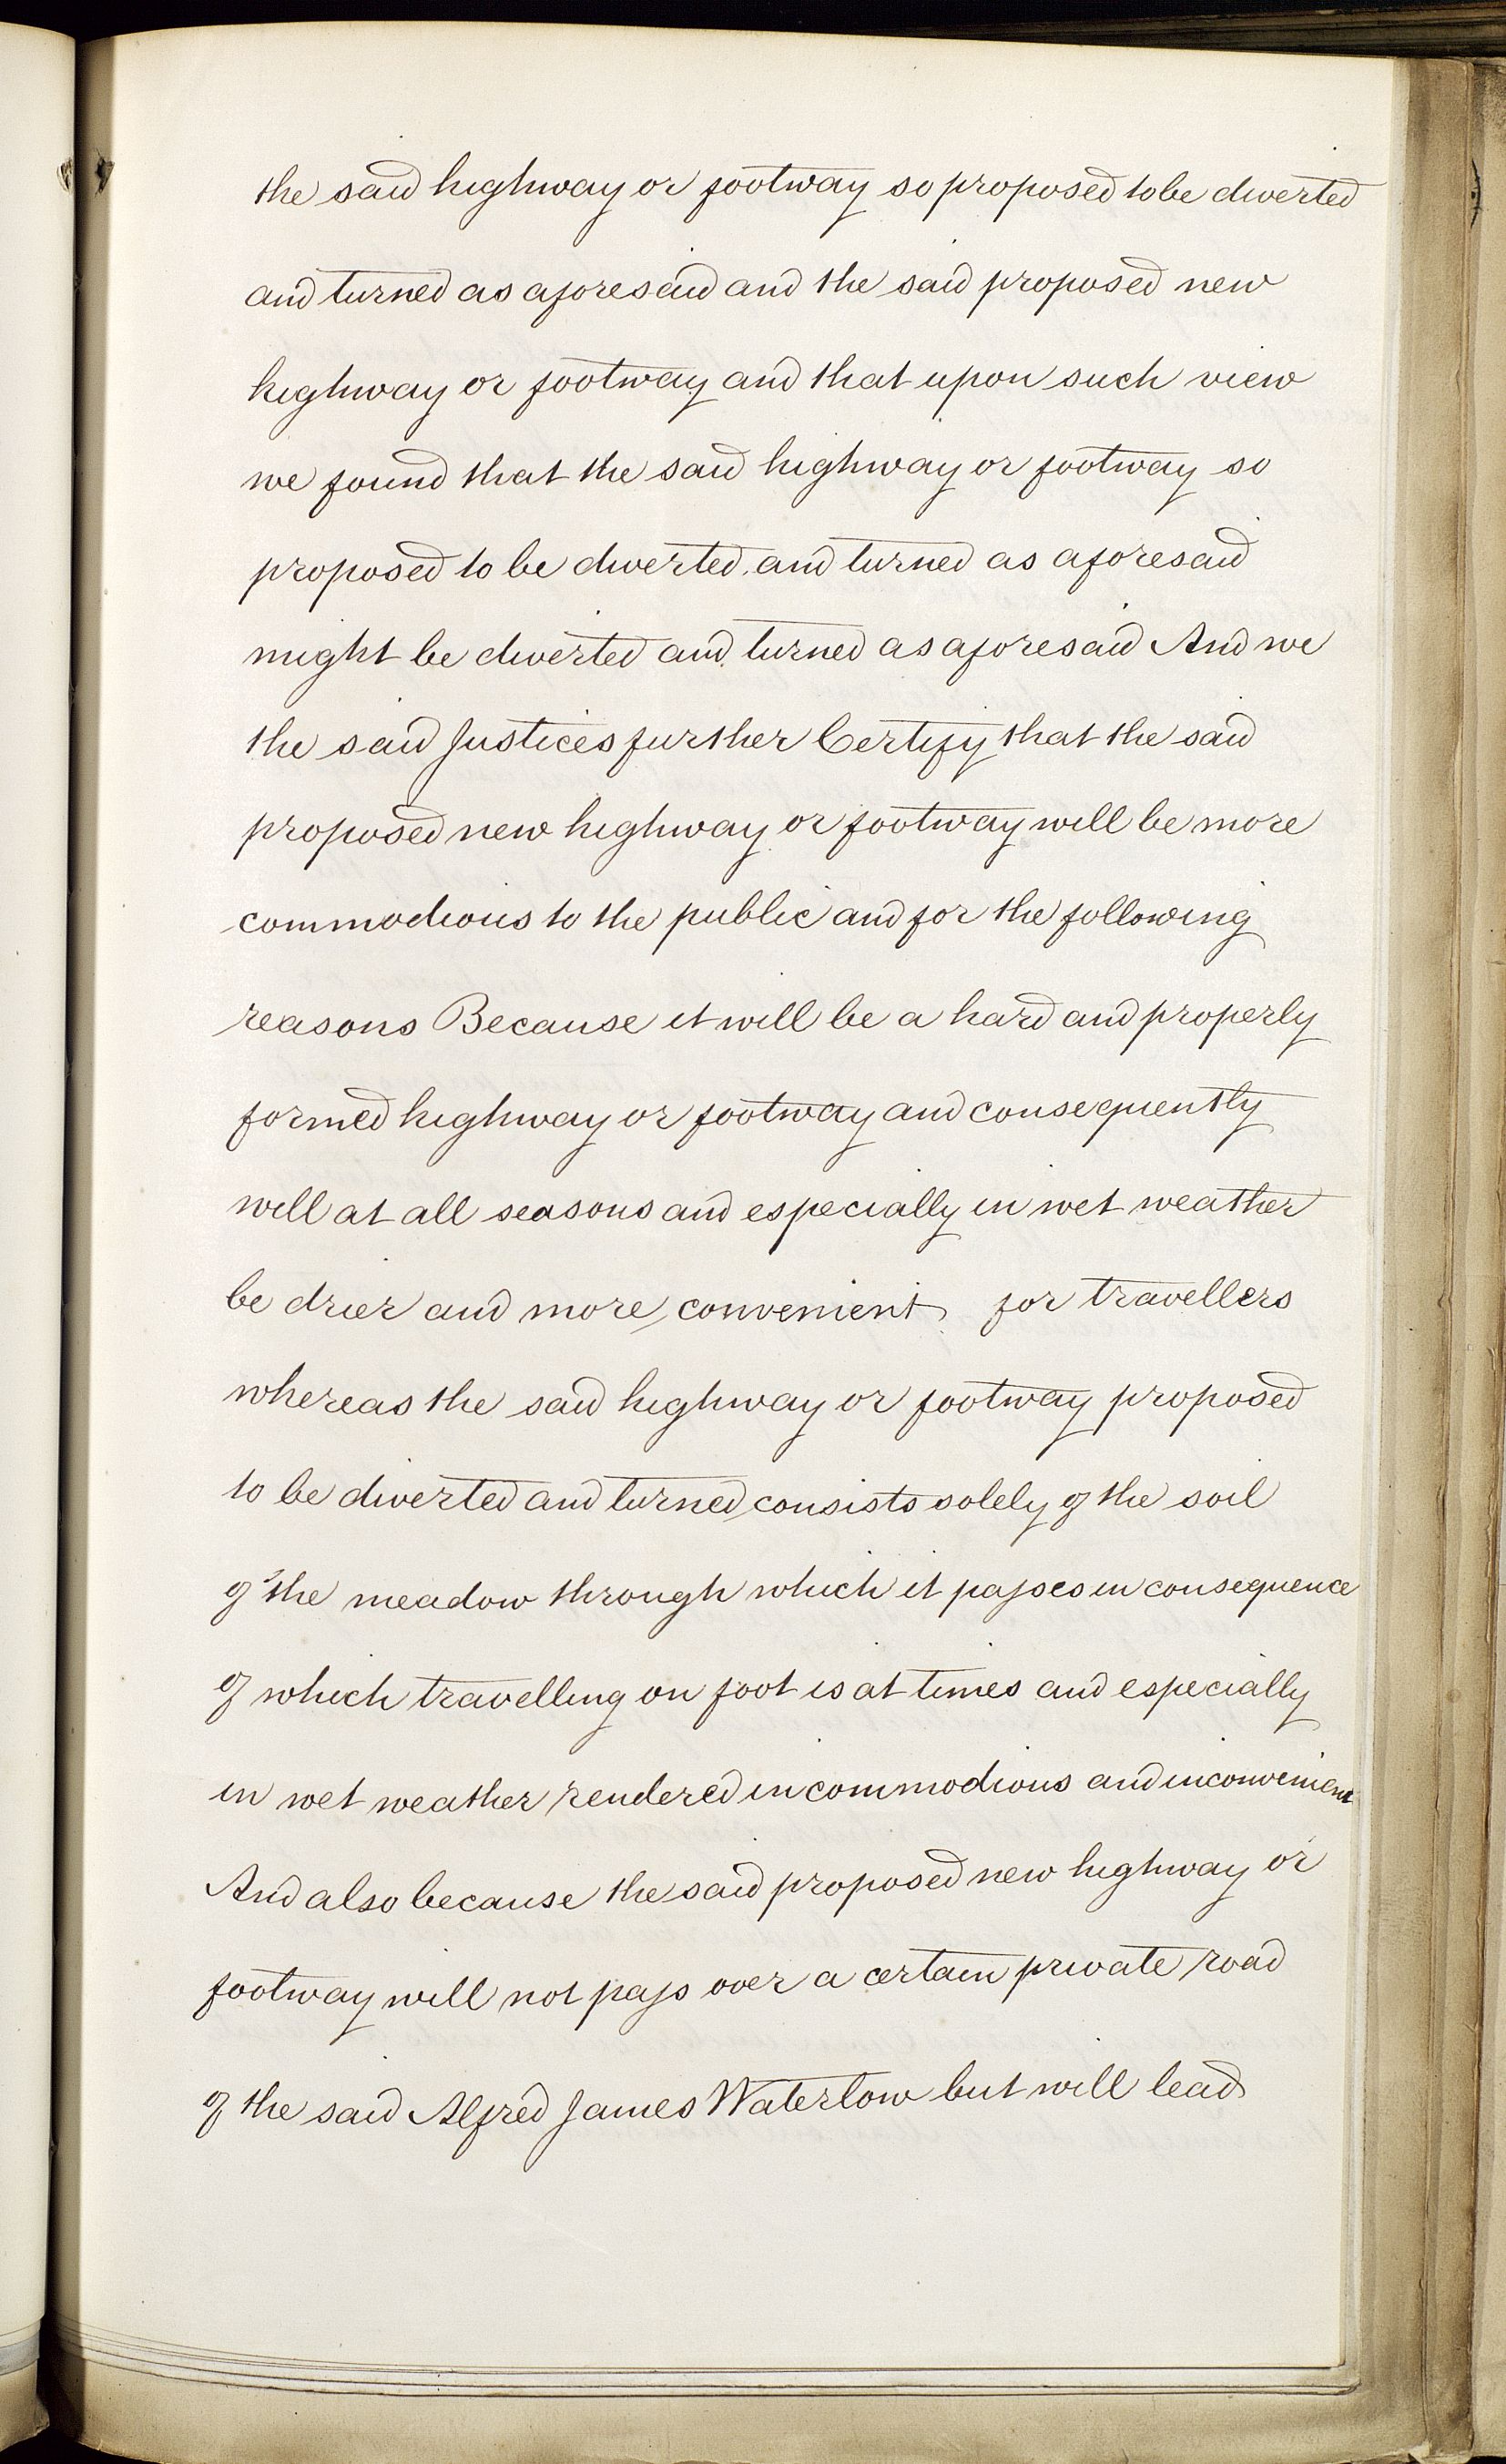 the said highway or footway so proposed to be diverted
and turned as aforesaid and the said proposed new
highway or footway and that upon such view
we found that the said highway or footway so
proposed to be diverted and turned as aforesaid
might be diverted and turned as aforesaid And we
the said Justices further Certify that the said
proposed new highway or footway will be more
commodious to the public and for the following
reasons Because it will be a hard and properly
formed highway or footway and consequently
will at all seasons and especially in wet weather
be drier and more convenient for travellers
whereas the said highway or footway proposed
to be diverted and turned consists solely of the soil
of the meadow through which it passes in consequence
of which travelling on foot is at times and especially
in wet weather rendered incommodious and inconvenient
And also because the said proposed new highway or
footway will not pass over a certain private road
of the said Alfred James Waterlow but will lead